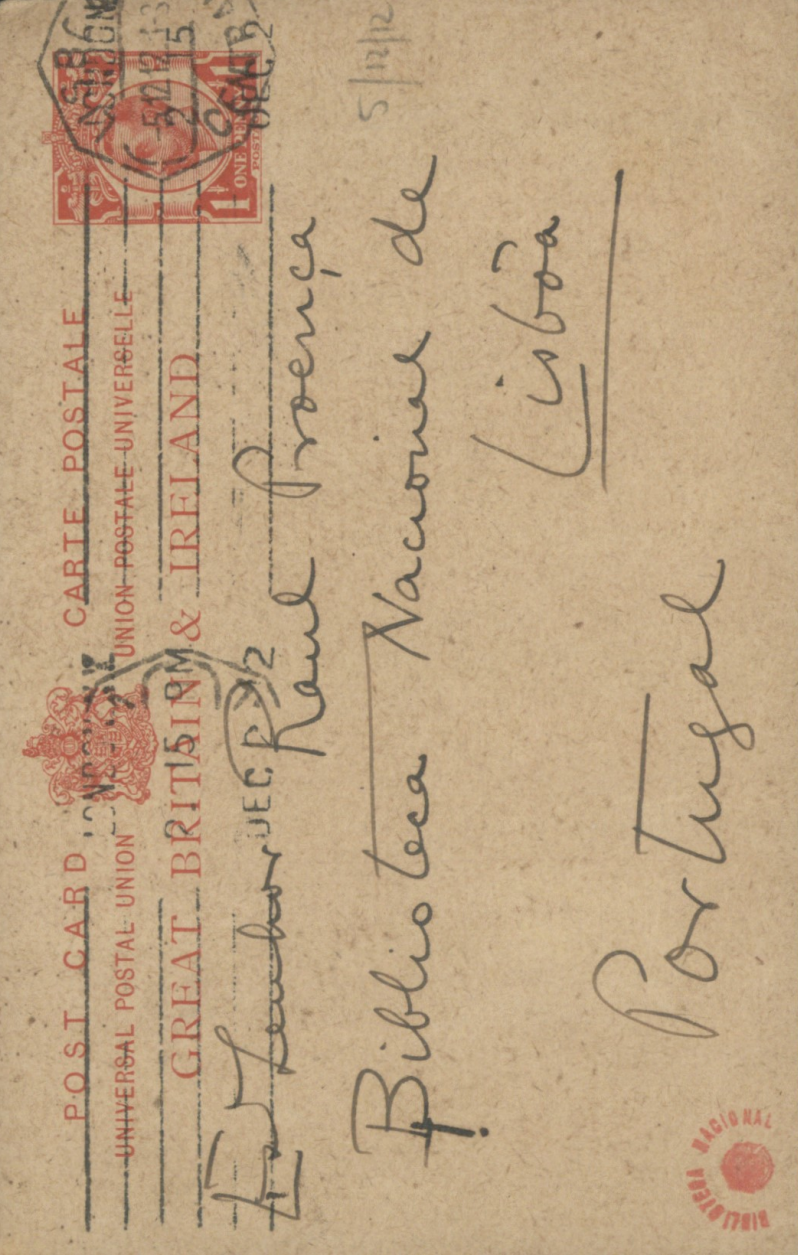 POST CARD CARTE POSTALE
UNIVERSAL POSTAL UNION UNION POSTALE UNIVERSELLE
GREAT BRITAIN & IRELAND
ONE PENNY
POSTAGE
LONDON
2 15 PM
DEC 5 12
5/12/12
Senhor Raul Proença
Biblioteca Nacional de
Lisbôa
Portugal
BIBLIOTECA NACIONAL